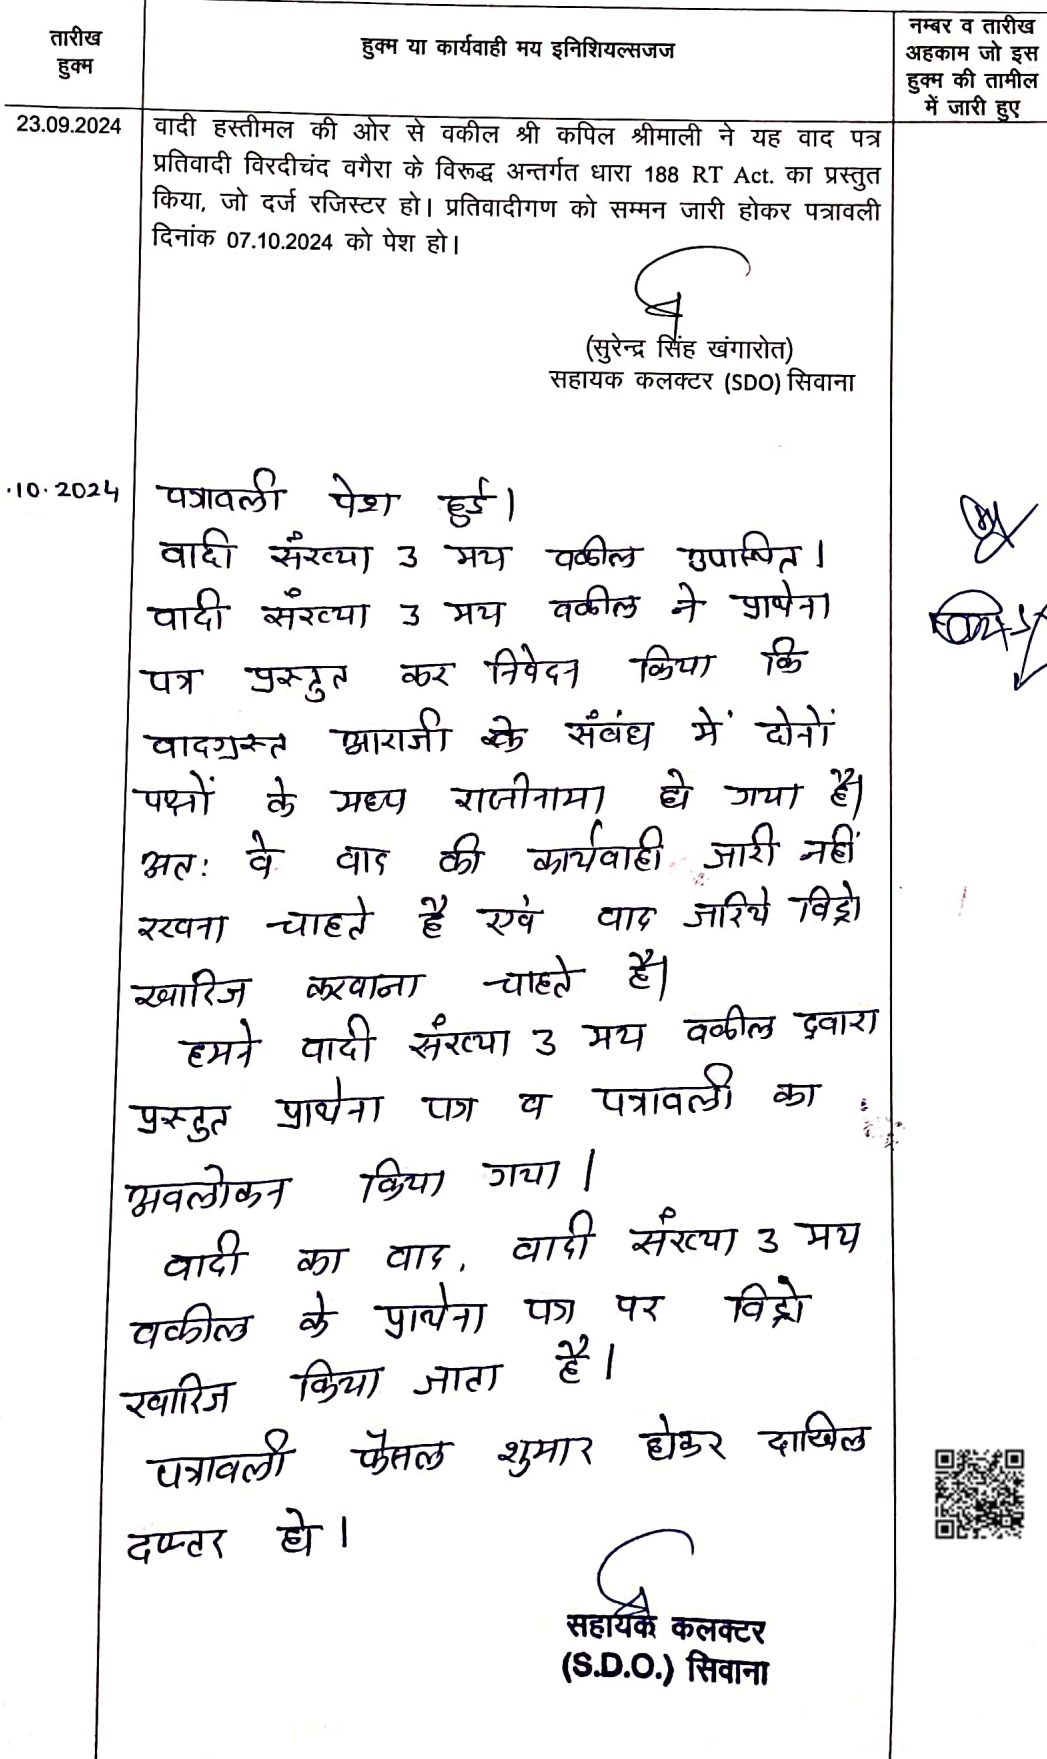 तारीख
हुक्म
हुक्म या कार्यवाही मय इनिशियल्सजज
नम्बर व तारीख
अहकाम जो इस
हुक्म की तामील
में जारी हुए
23.09.2024
वादी हस्तीमल की ओर से वकील श्री कपिल श्रीमाली ने यह वाद पत्र
प्रतिवादी विरदीचंद वगैरा के विरूद्ध अन्तर्गत धारा 188 RT Act. का प्रस्तुत
किया, जो दर्ज रजिस्टर हो। प्रतिवादीगण को सम्मन जारी होकर पत्रावली
दिनांक 07.10.2024 को पेश हो।
(सुरेन्द्र सिंह खंगारोत)
सहायक कलक्टर (SDO) सिवाना
.10.2024
पत्रावली पेश हुई।
वादी संख्या 3 मय वकील उपस्थित।
वादी संख्या 3 मय वकील ने प्रार्थना
पत्र प्रस्तुत कर निवेदन किया कि
वादग्रस्त आराजी के संबंध में दोनों
पक्षों के मध्य राजीनामा हो गया है।
अतः वे वाद की कार्यवाही जारी नहीं
रखना चाहते है एवं वाद जरिये विड्रो
खारिज करवाना चाहते है।
हमने वादी संख्या 3 मय वकील द्वारा
प्रस्तुत प्रार्थना पत्र व पत्रावली का
अवलोकन किया गया।
वादी का वाद, वादी संख्या 3 मय
वकील के प्रार्थना पत्र पर विड्रो
खारिज किया जाता है।
पत्रावली फैसल शुमार होकर दाखिल
दफ्तर हो।
सहायक कलक्टर
(S.D.O.) सिवाना